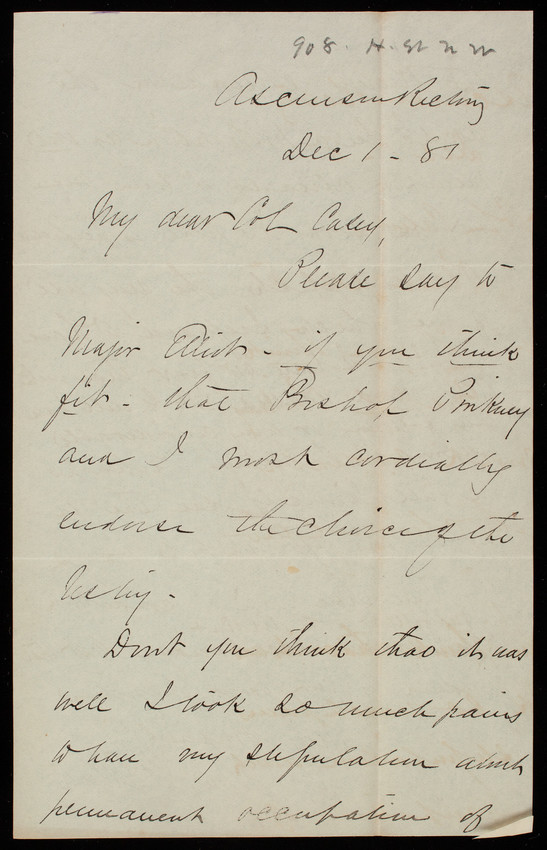 908. H. St N W
Ascension Rectory
Dec 1 - 81
My dear Col Casey,
Please say to
Major Elliot - if you think
fit - that Bishop Pinkney
and I most cordially
endorse the choice of the
Vestry -
Dont you think that it was
well I took so much pains
to have my stipulation about
permanent occupation of